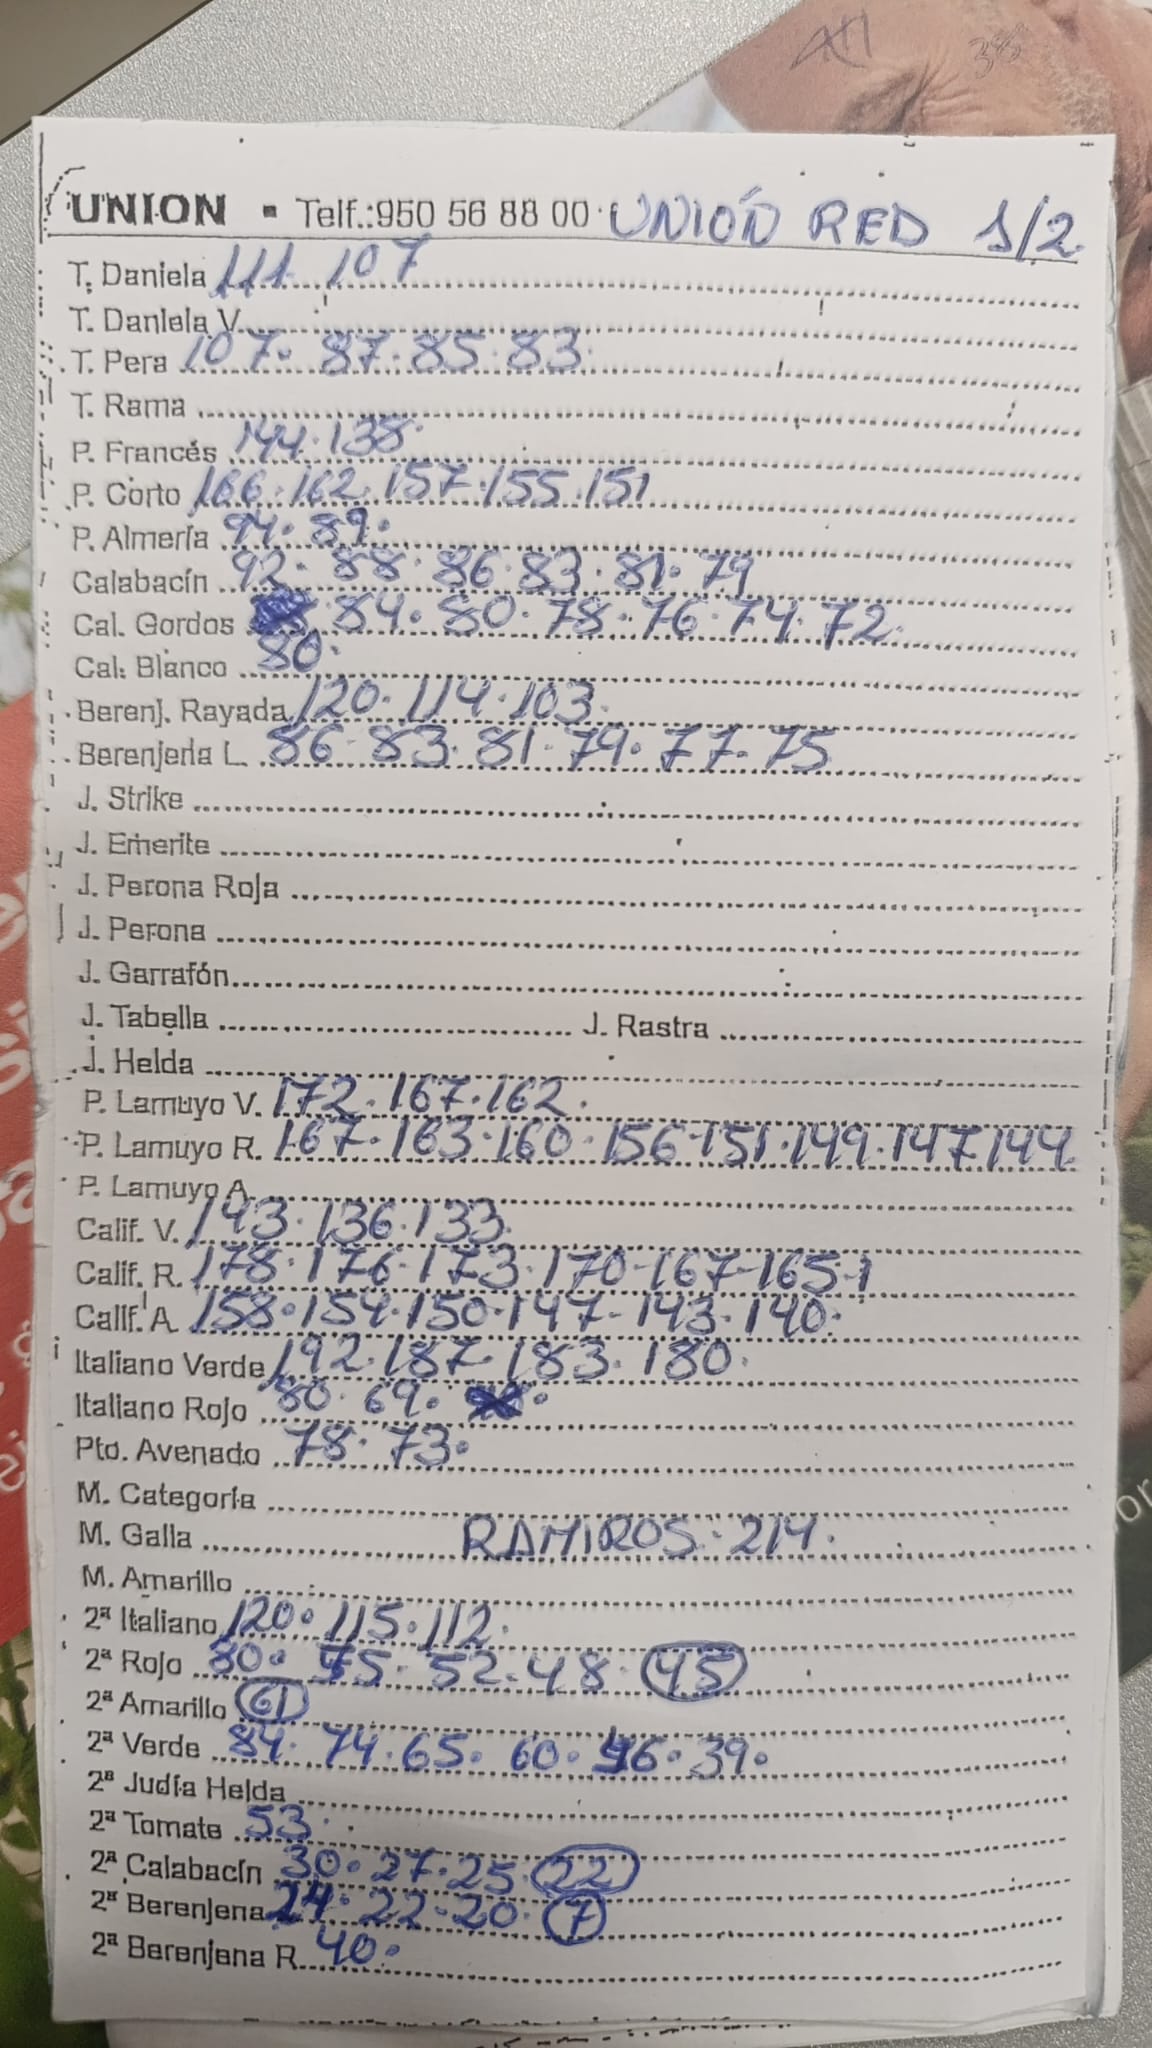 UNION ▪ Telf.:950 56 88 00 UNIÓN RED 1/2
T. Daniela 111. 107
T. Daniela V.
T. Pera 107. 87. 85. 83.
T. Rama
P. Francés 144. 138.
P. Corto 166. 162. 157. 155. 151
P. Almería 94. 89.
Calabacín 92. 88. 86. 83. 81. 79
Cal. Gordos 84. 80. 78. 76. 74. 72.
Cal. Blanco 80.
Berenj. Rayada 120. 114. 103.
Berenjena L. 86. 83. 81. 79. 77. 75
J. Strike
J. Emerite
J. Perona Roja
J. Perona
J. Garrafón
J. Tabella J. Rastra
J. Helda
P. Lamuyo V. 172. 167. 162.
P. Lamuyo R. 167. 163. 160. 156-151. 149. 147. 144.
P. Lamuyo A.
Calif. V. 143. 136. 133.
Calif. R. 178. 176. 173. 170-167-165-1
Calif. A. 158. 154. 150. 147- 143. 140.
Italiano Verde 192. 187. 183. 180.
Italiano Rojo 80. 69.
Pto. Avenado 78. 73.
M. Categoría
M. Galla RAMIROS. 214.
M. Amarillo
2ª Italiano 120. 115. 112.
2ª Rojo 80. 52. 48. 45
2ª Amarillo 61
2ª Verde 84. 74. 65. 60. 39.
2ª Judía Helda
2ª Tomate 53.
2ª Calabacín 30. 27. 25. 22
2ª Berenjena 24. 22. 20. 7
2ª Berenjena R. 40.